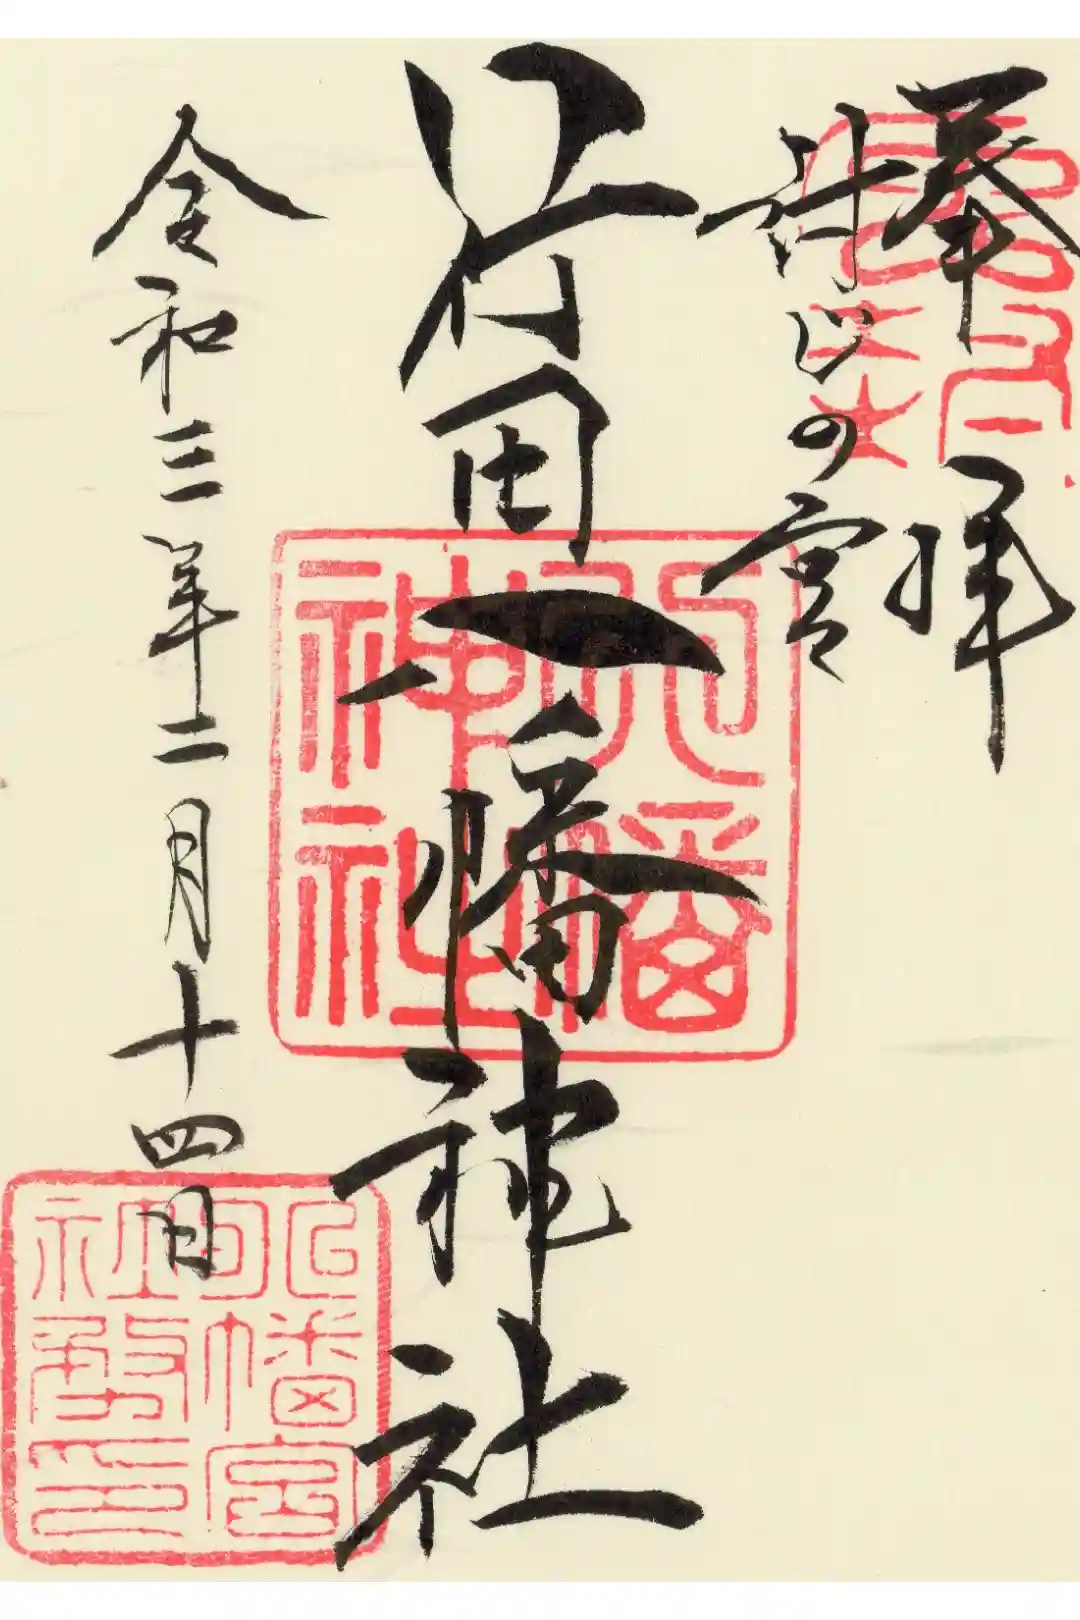 奉拝
封じの宮
行田八幡神社
令和三年二月十四日
八幡
神社
八幡宮
社務印